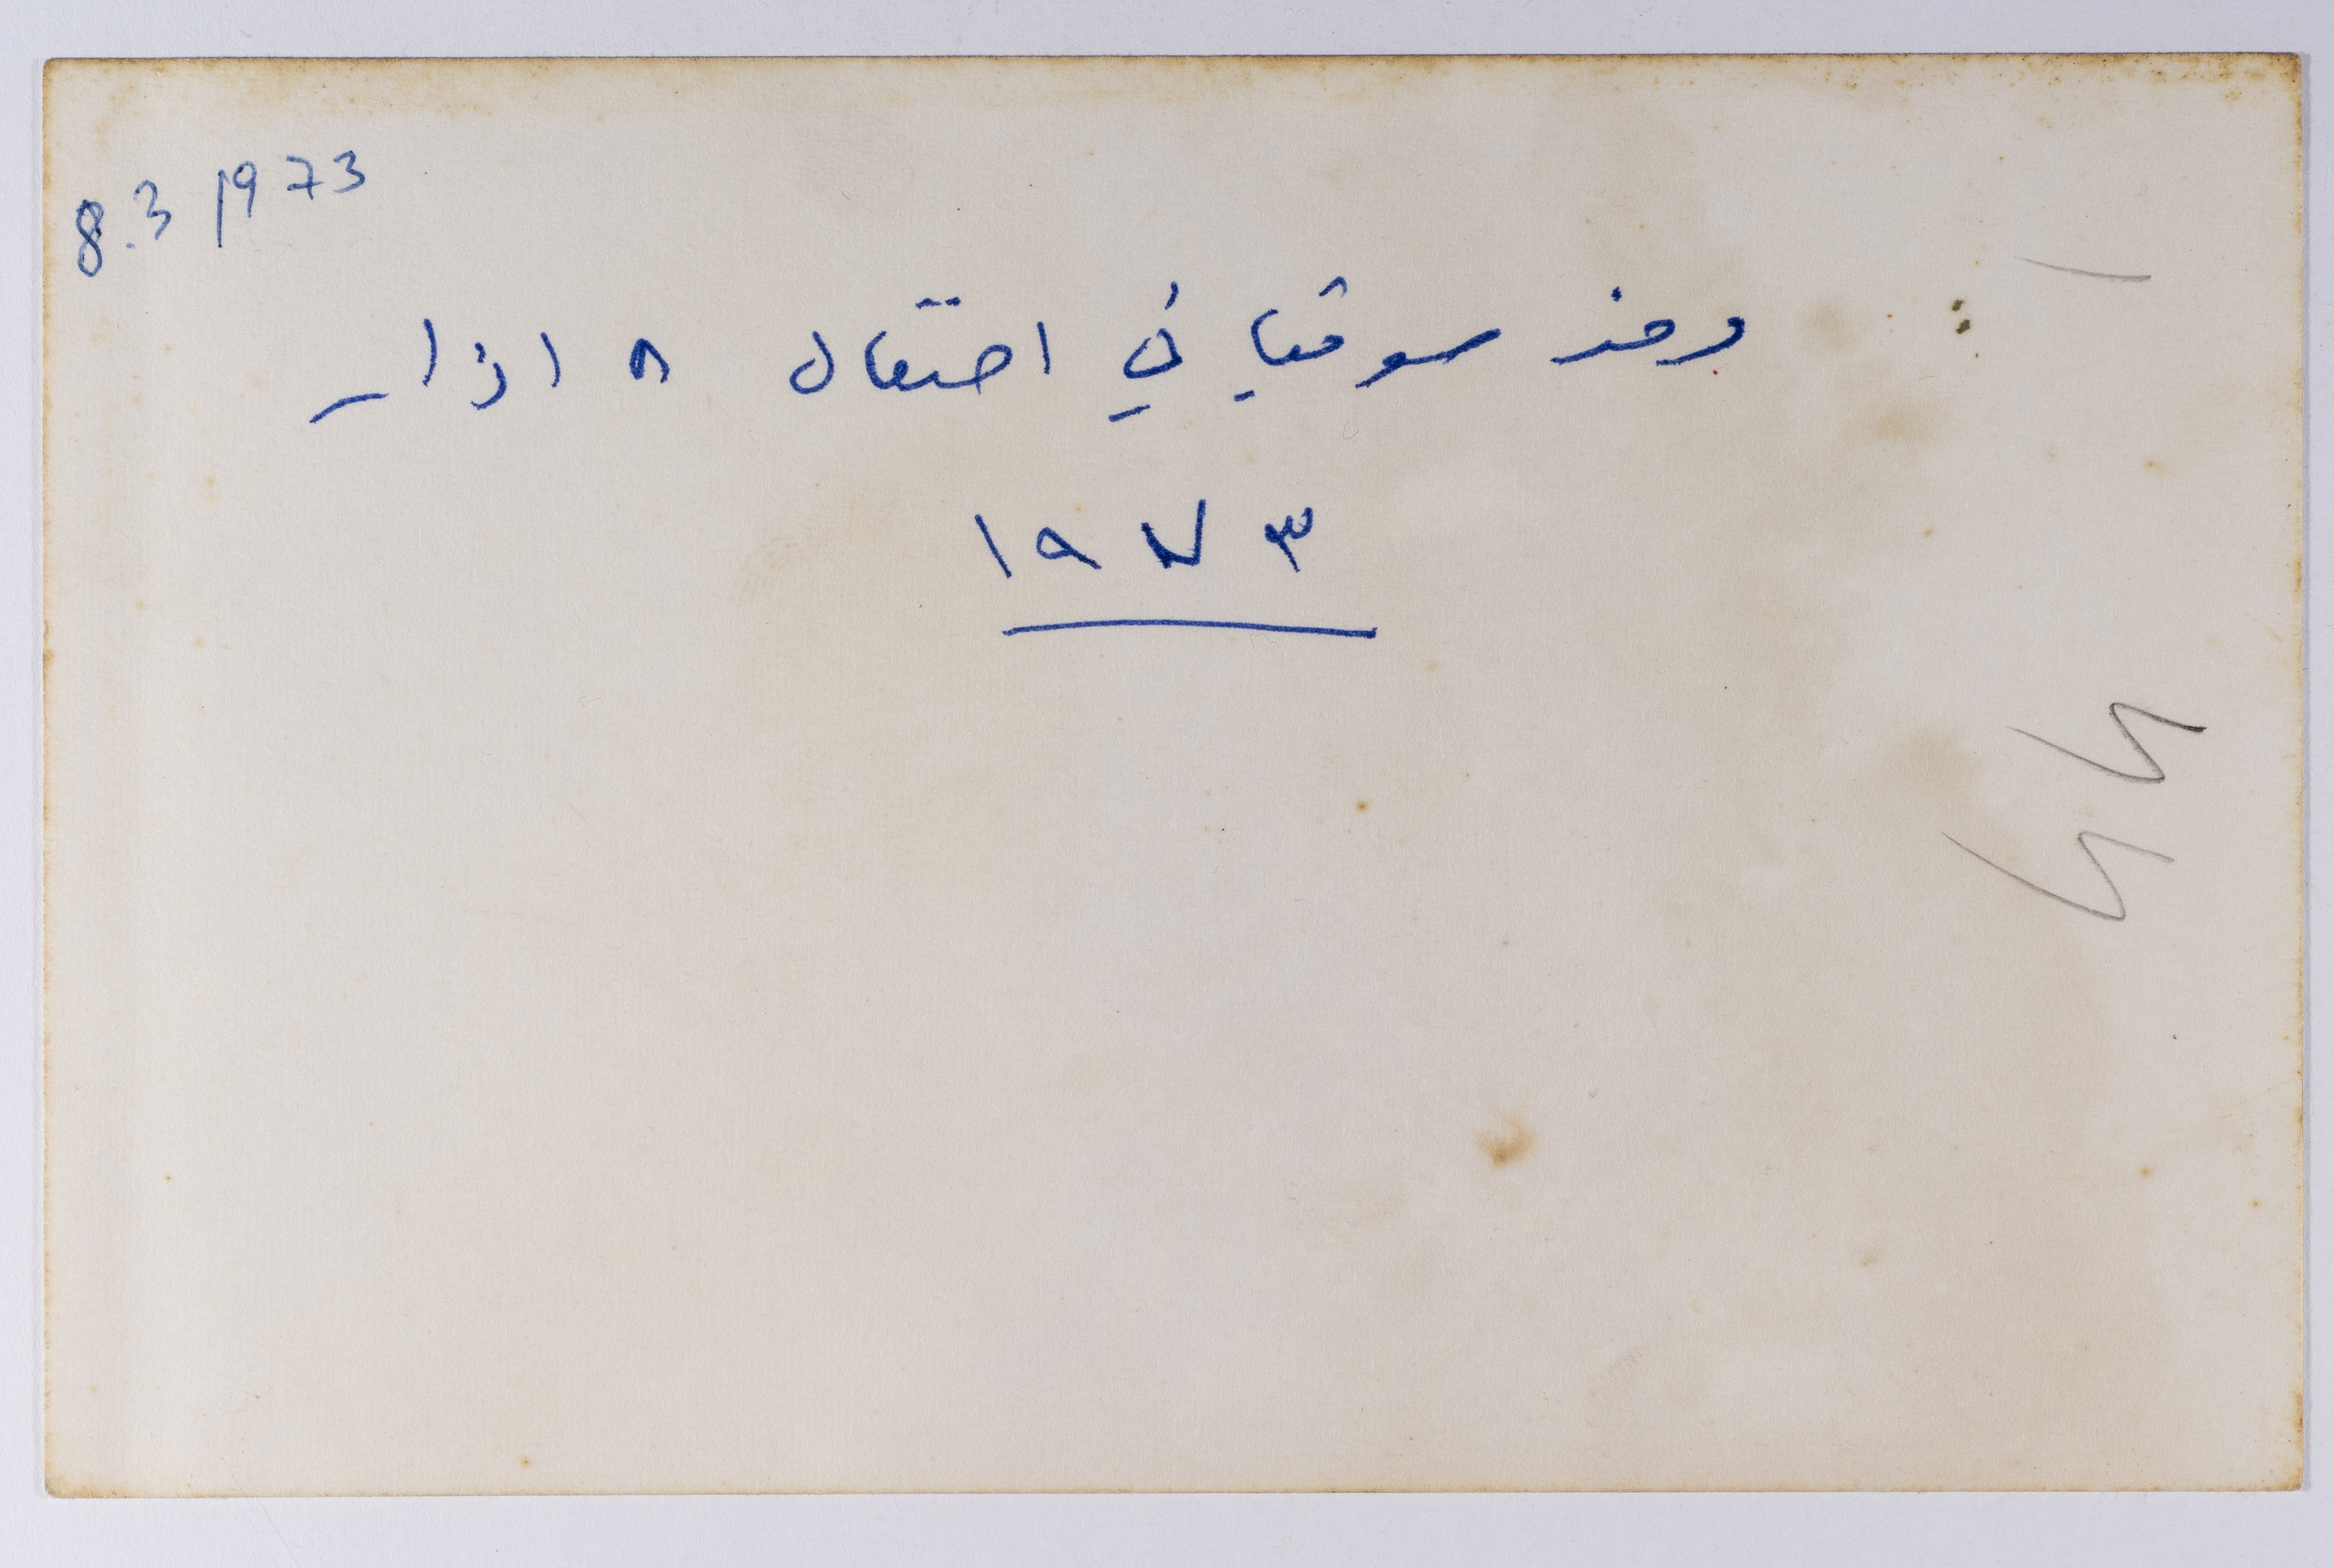 8.3 1973
وفد سوفياتي في احتفال ٨ اذار
١٩٧٣